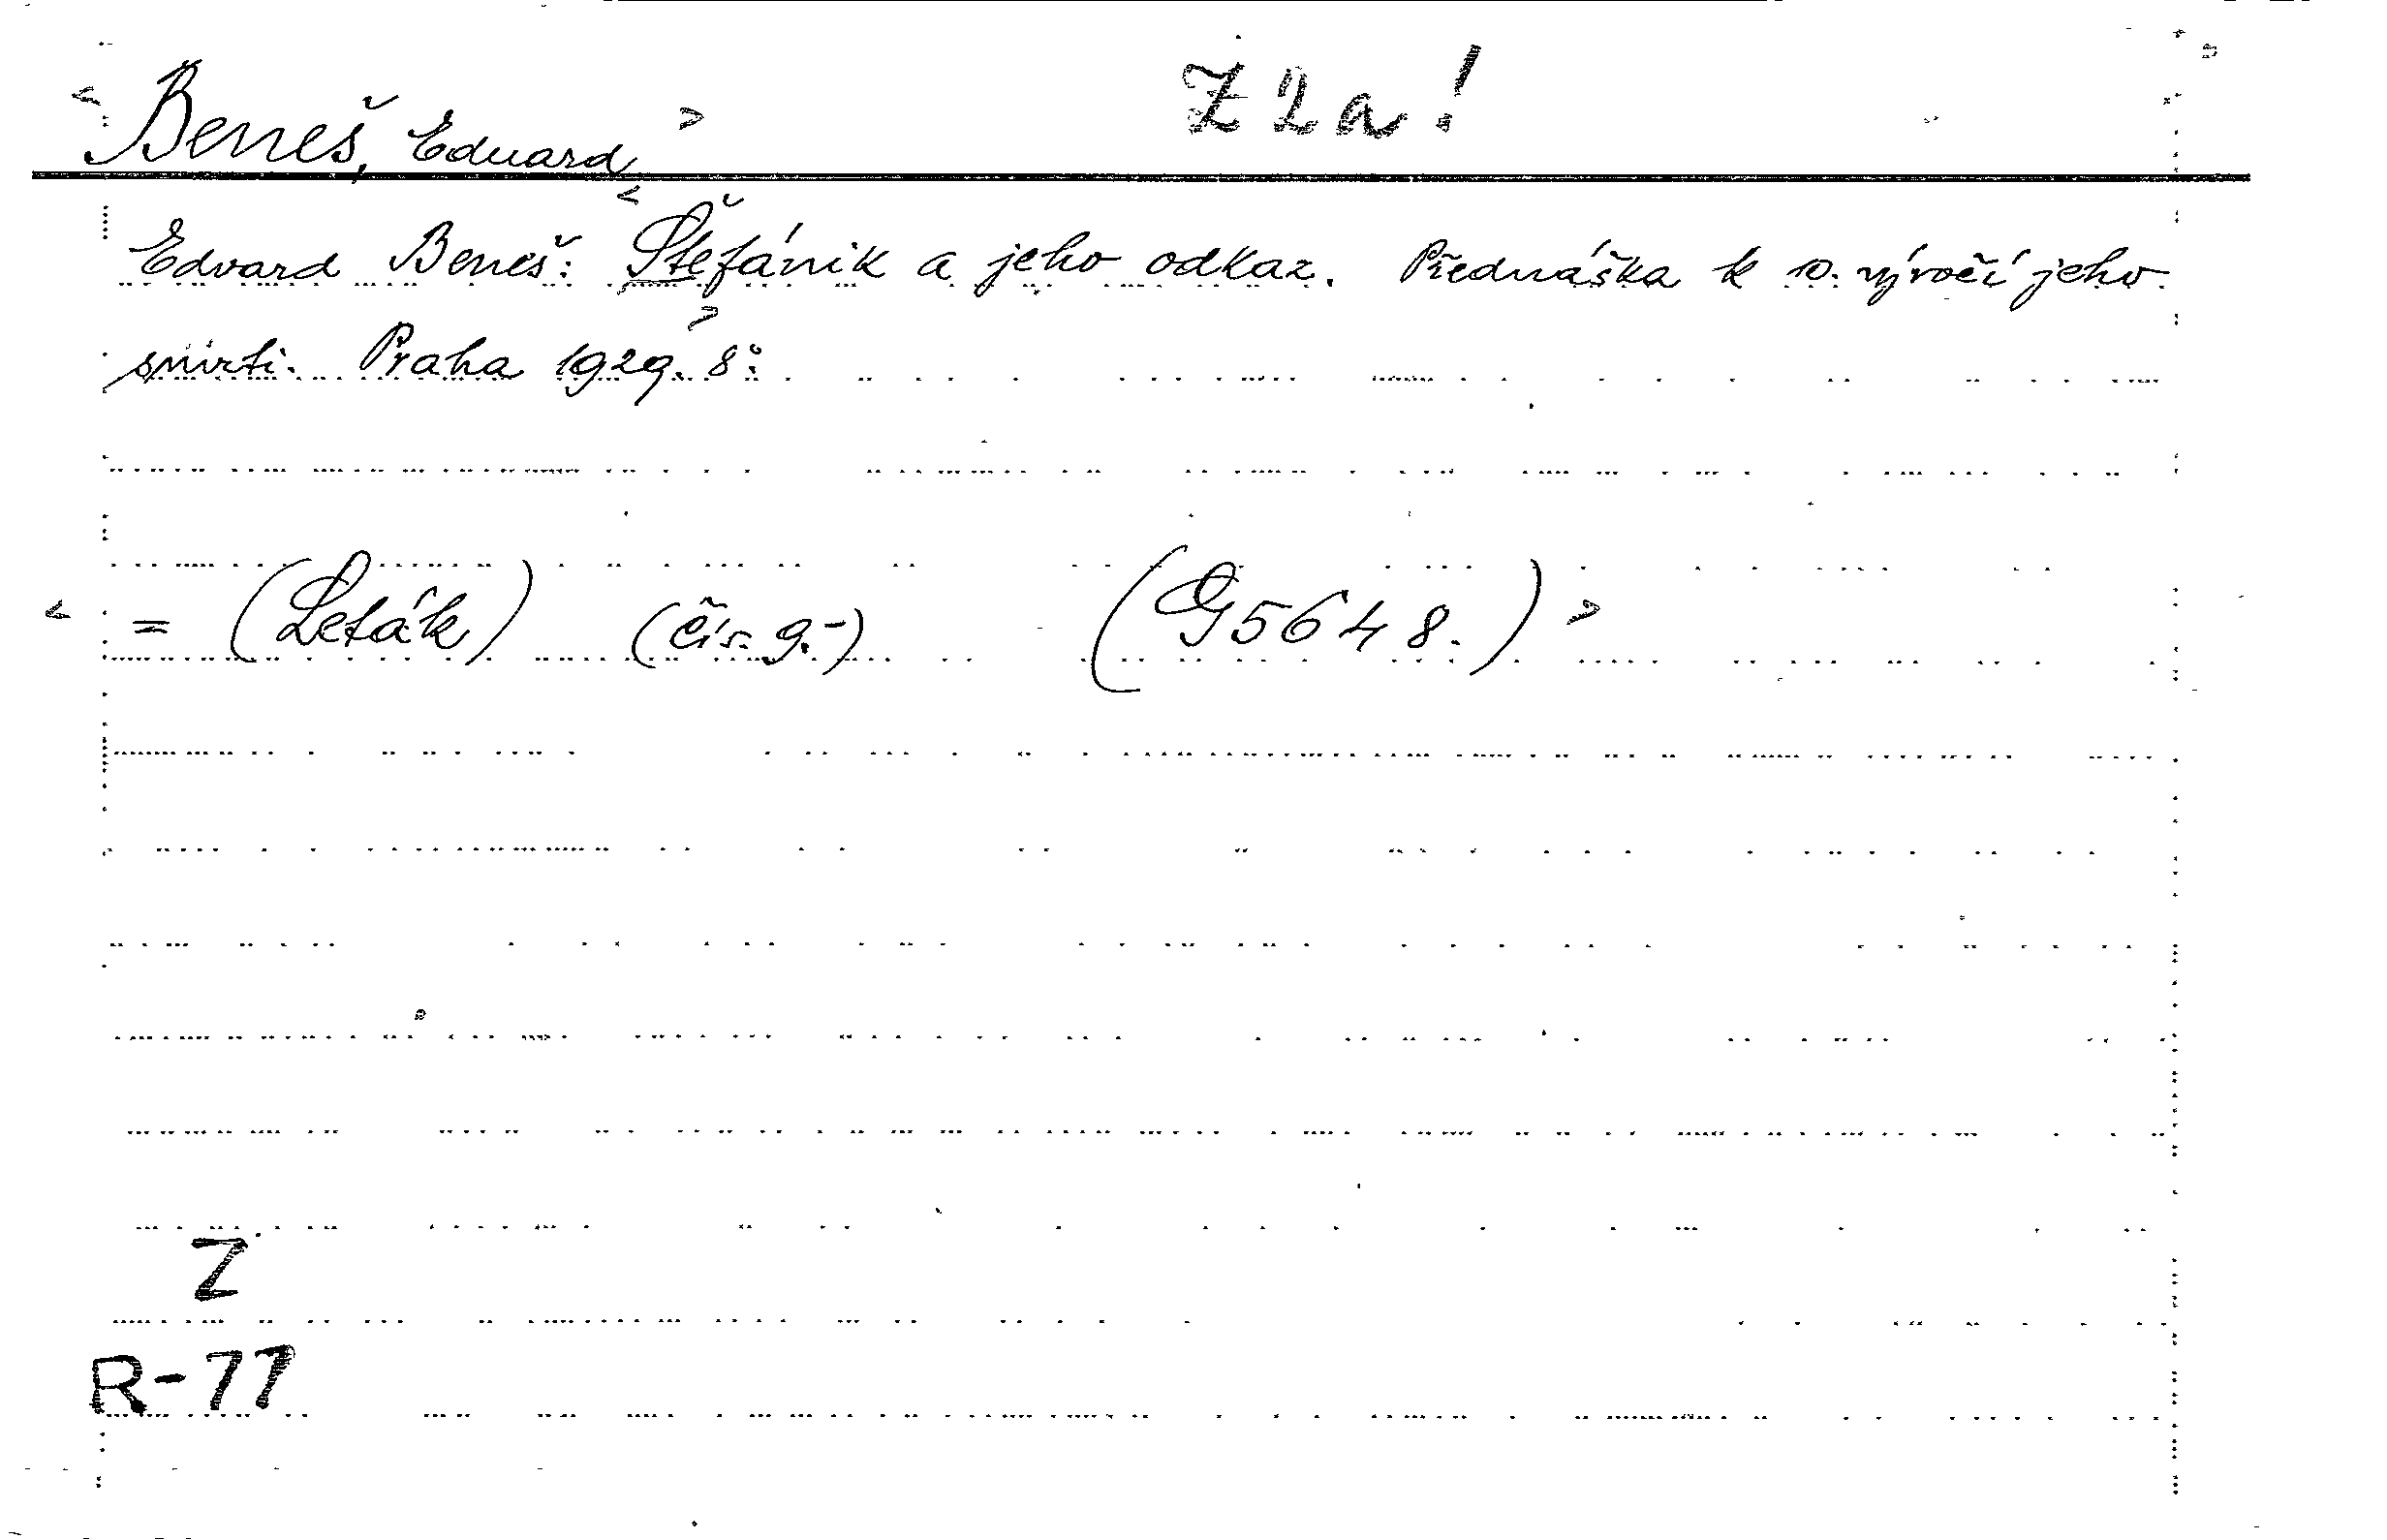 < Beneš, Eduard > Z 2 a !
Edvard Beneš: < Štefánik a jeho odkaz. Přednáška k 10. výročí jeho
smrti. Praha 1929. > 8°.
< = (Leták) (čís. 9.-) (G 5648.) >
Z
R-77